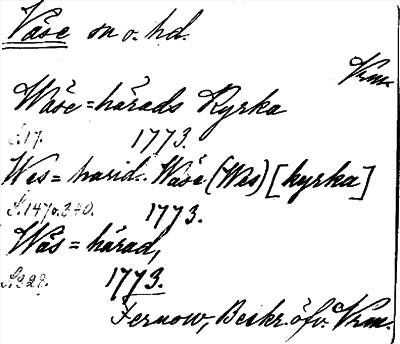 Väse sn o. hd.
Vrm.
Wäse=härads Kyrka
S.17. 1773.
Wes=harid. Wäse (Wes) [kyrka]
S.147 o. 340. 1773.
Wäs=härad,
1773.
Fernow, Beskr. öfv. Vrm.